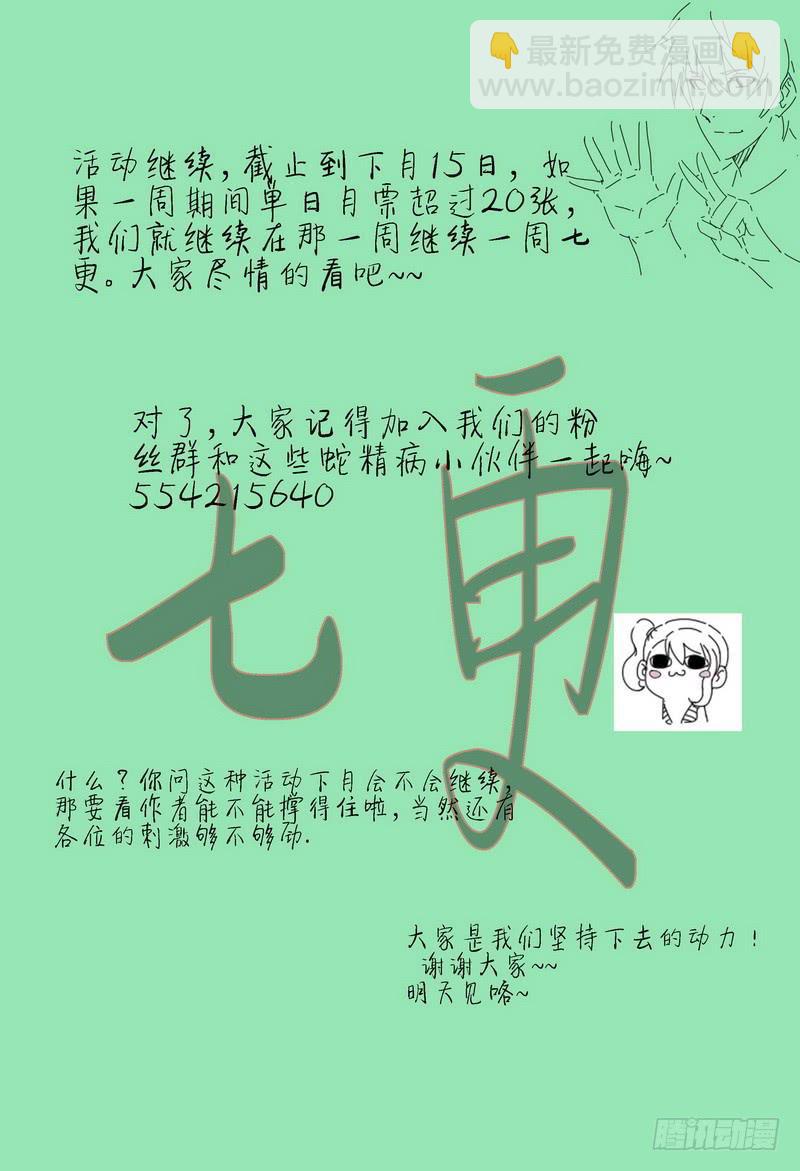 👇最新免费漫画👇
www.baozimh.com
活动继续，截止到下月15日，如
果一周期间单日月票超过20张，
我们就继续在那一周继续一周七
更。大家尽情的看吧~~
对了，大家记得加入我们的粉
丝群和这些蛇精病小伙伴一起嗨~
554215640
七更
什么？你问这种活动下月会不会继续，
那要看作者能不能撑得住啦，当然还有
各位的刺激够不够劲.
大家是我们坚持下去的动力！
谢谢大家~~
明天见咯~
腾讯动漫